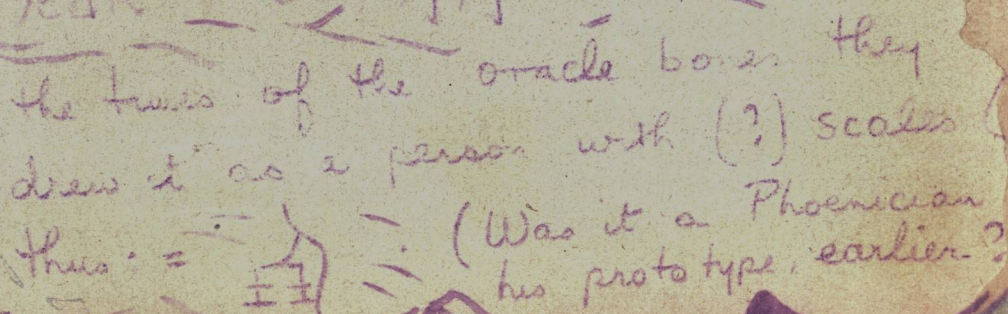 the times of the oracle bones they
drew it as a person with (?) scales
thus =
(Was it a Phoenician
his prototype, earlier?